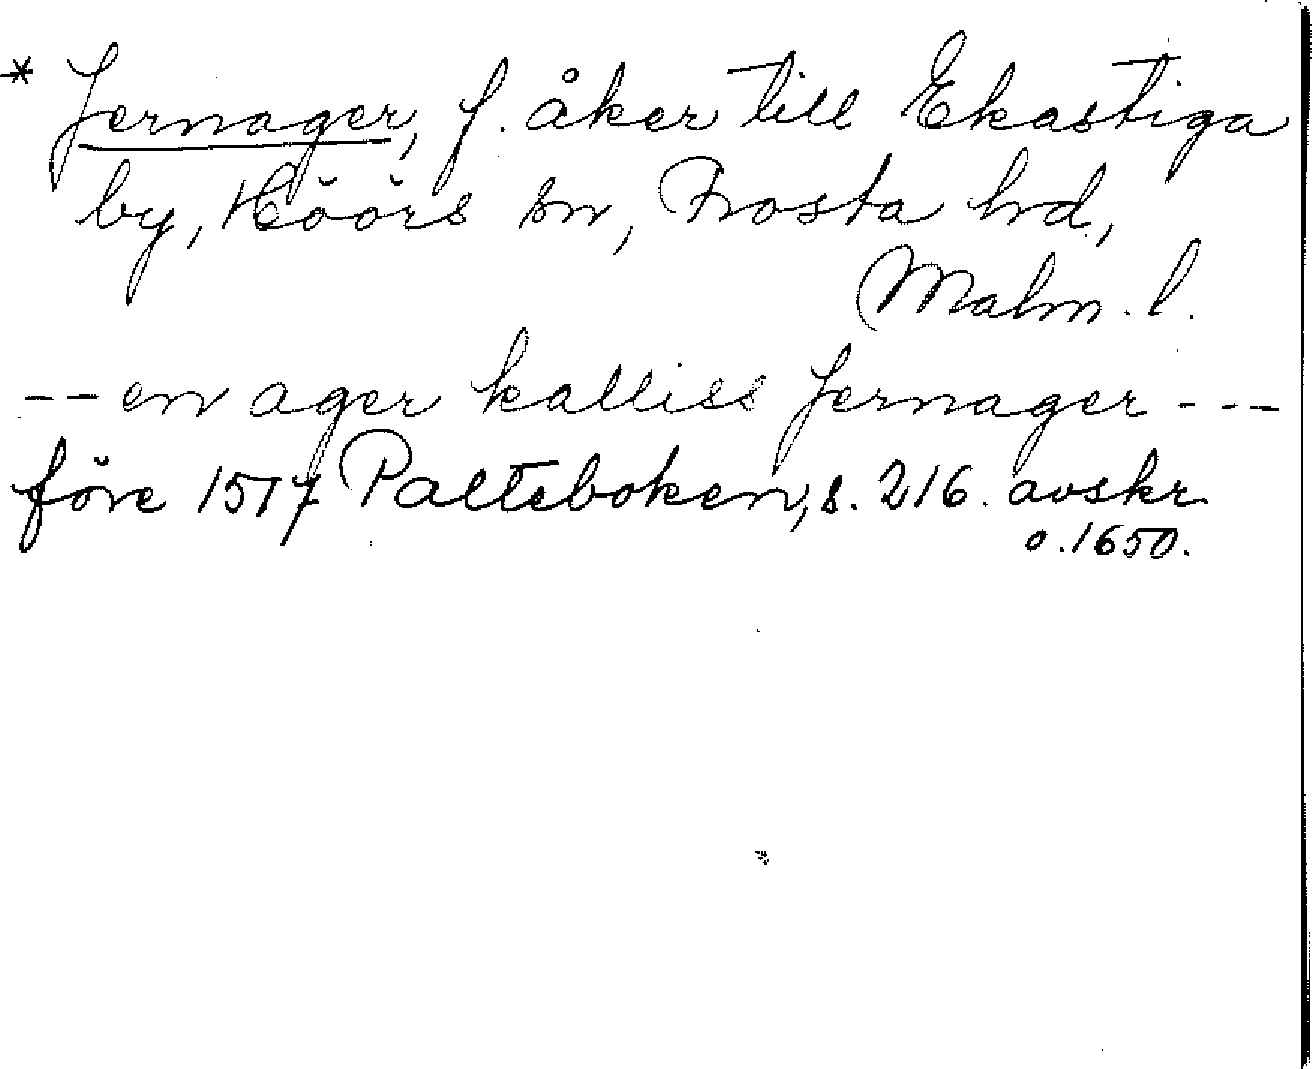 * Jernager, f. åker till Ekastiga
by, Höörs sn, Frosta hd,
Malm. l.
-- en ager kalliss Jernager ---
före 1517 Palteboken, s. 216. avskr.
o. 1650.